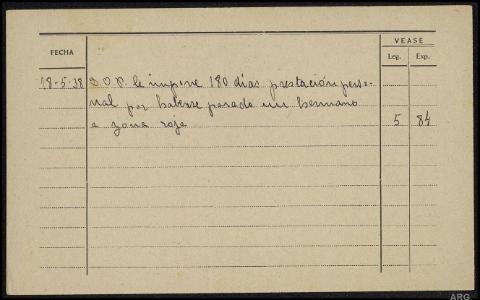 VEASE
FECHA Leg. Exp.
18-5-38 D.O.P. le impone 180 dias prestación perso-
nal por haberse pasado un hermano
a zona roja 5 84
ARG